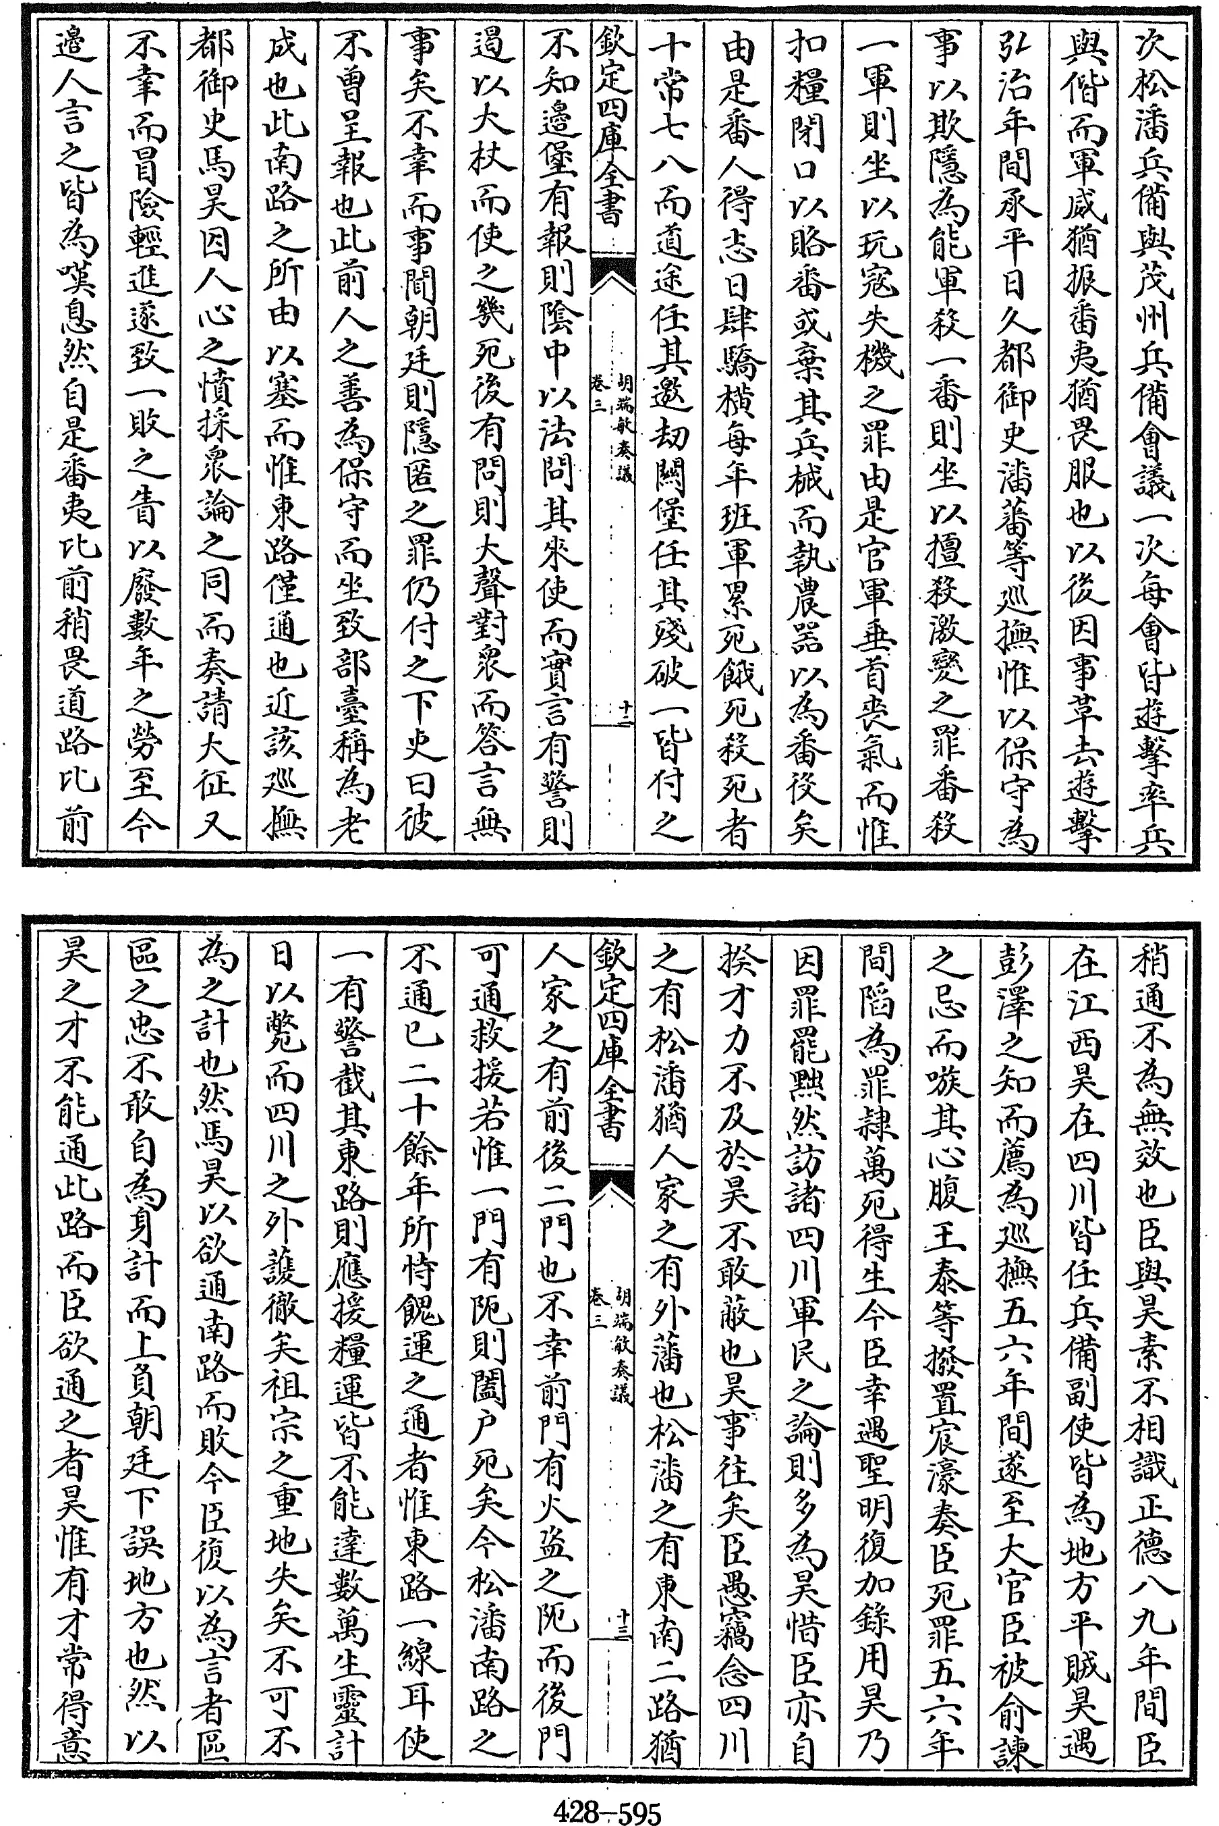 次松潘兵備與茂州兵備會議一次每會皆遊擊率兵
與偕而軍威猶振番夷猶畏服也以後因事革去遊擊
弘治年間承平日久都御史潘蕃等巡撫惟以保守為
事以欺隱為能軍殺一番則坐以擅殺激變之罪番殺
一軍則坐以玩寇失機之罪由是官軍垂首喪氣而惟
扣糧閉口以賂番或棄其兵械而執農器以為番役矣
由是番人得志日肆驕橫每年班軍累死餓死殺死者
十常七八而道途任其邀劫關堡任其殘破一皆付之
欽定四庫全書
胡端敏奏議
卷三
十二
不知邊堡有報則陰中以法問其來使而實言有警則
過以大杖而使之幾死後有問則大聲對衆而答言無
事矣不幸而事聞朝廷則隱匿之罪仍付之下吏曰彼
不曾呈報也此前人之善為保守而坐致部臺稱為老
成也此南路之所由以塞而惟東路僅通也近該巡撫
都御史馬昊因人心之憤採衆論之同而奏請大征又
不幸而冒險輕進遂致一敗之眚以廢數年之勞至今
邊人言之皆為嘆息然自是番夷比前稍畏道路比前
稍通不為無效也臣與昊素不相識正德八九年間臣
在江西昊在四川皆任兵備副使皆為地方平賊昊遇
彭澤之知而薦為巡撫五六年間遂至大官臣被俞諫
之忌而嗾其心腹王泰等撥置宸濠奏臣死罪五六年
間陷為罪隸萬死得生今臣幸遇聖明復加錄用昊乃
因罪罷黜然訪諸四川軍民之論則多為昊惜臣亦自
揆才力不及於昊不敢蔽也昊事往矣臣愚竊念四川
之有松潘猶人家之有外藩也松潘之有東南二路猶
欽定四庫全書
胡端敏奏議
卷三
十三
人家之有前後二門也不幸前門有火盜之阨而後門
可通救援若惟一門有阨則闔户死矣今松潘南路之
不通已二十餘年所恃餽運之通者惟東路一線耳使
一有警截其東路則應援糧運皆不能達數萬生靈計
日以斃而四川之外護徹矣祖宗之重地失矣不可不
為之計也然馬昊以欲通南路而敗今臣復以為言者區
區之忠不敢自為身計而上負朝廷下誤地方也然以
昊之才不能通此路而臣欲通之者昊惟有才常得意
428-595